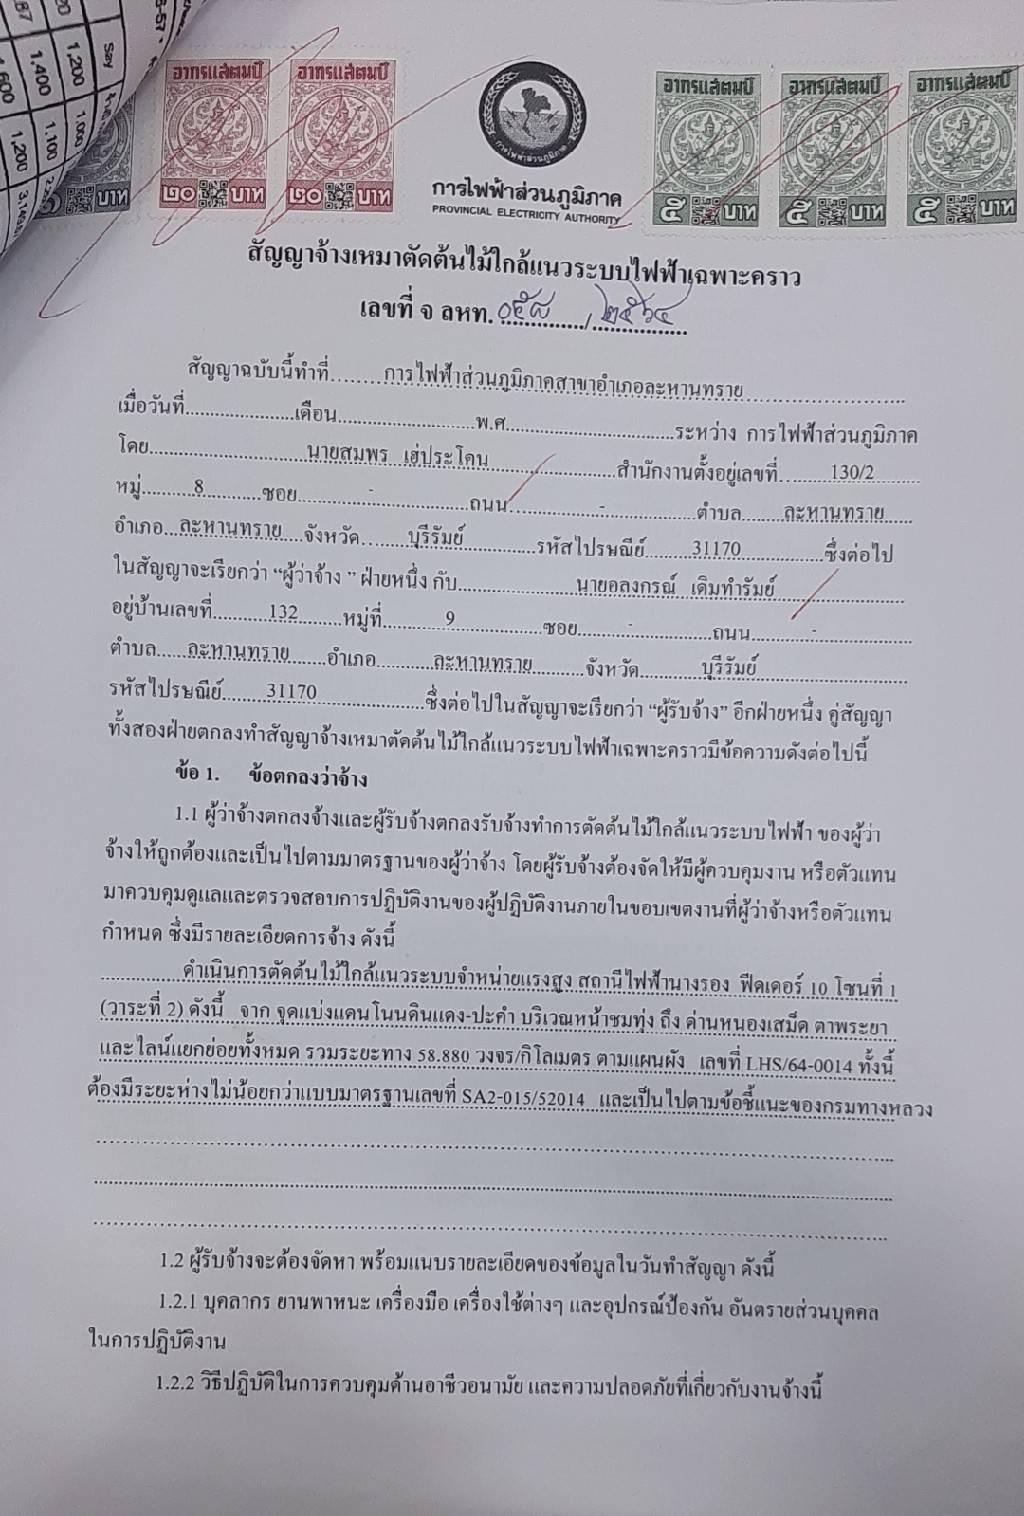 Say
1,200
1,400
1,000
1,100
1,200
อากรแสตมป์
อากรแสตมป์
อากรแสตมป์
อากรแสตมป์
อากรแสตมป์
บาท
๒๐ บาท
๒๐ บาท
๕ บาท
๕ บาท
๕ บาท
การไฟฟ้าส่วนภูมิภาค
การไฟฟ้าส่วนภูมิภาค
PROVINCIAL ELECTRICITY AUTHORITY
สัญญาจ้างเหมาตัดต้นไม้ใกล้แนวระบบไฟฟ้าเฉพาะคราว
เลขที่ จ ลหท. ๐๕๘ / ๒๕๖๔
สัญญาฉบับนี้ทำที่.......การไฟฟ้าส่วนภูมิภาคสาขาอำเภอละหานทราย
เมื่อวันที่......................เดือน............................พ.ศ...................................ระหว่าง การไฟฟ้าส่วนภูมิภาค
โดย................................นายสมพร เฮ่ประโคน..........................สำนักงานตั้งอยู่เลขที่...........130/2
หมู่..........8............ซอย..............-...................ถนน..................-...................ตำบล.........ละหานทราย
อำเภอ...ละหานทราย...จังหวัด.........บุรีรัมย์...............รหัสไปรษณีย์.........31170.................ซึ่งต่อไป
ในสัญญาจะเรียกว่า “ผู้ว่าจ้าง ” ฝ่ายหนึ่ง กับ........................นายอลงกรณ์ เดิมทำรัมย์
อยู่บ้านเลขที่...........132.........หมู่ที่............9..................ซอย..........-................ถนน............-
ตำบล......ละหานทราย.......อำเภอ...........ละหานทราย..........จังหวัด............บุรีรัมย์
รหัสไปรษณีย์........31170......................ซึ่งต่อไปในสัญญาจะเรียกว่า “ผู้รับจ้าง” อีกฝ่ายหนึ่ง คู่สัญญา
ทั้งสองฝ่ายตกลงทำสัญญาจ้างเหมาตัดต้นไม้ใกล้แนวระบบไฟฟ้าเฉพาะคราวมีข้อความดังต่อไปนี้
ข้อ 1. ข้อตกลงว่าจ้าง
1.1 ผู้ว่าจ้างตกลงจ้างและผู้รับจ้างตกลงรับจ้างทำการตัดต้นไม้ใกล้แนวระบบไฟฟ้า ของผู้ว่า
จ้างให้ถูกต้องและเป็นไปตามมาตรฐานของผู้ว่าจ้าง โดยผู้รับจ้างต้องจัดให้มีผู้ควบคุมงาน หรือตัวแทน
มาควบคุมดูแลและตรวจสอบการปฏิบัติงานของผู้ปฏิบัติงานภายในขอบเขตงานที่ผู้ว่าจ้างหรือตัวแทน
กำหนด ซึ่งมีรายละเอียดการจ้าง ดังนี้
ดำเนินการตัดต้นไม้ใกล้แนวระบบจำหน่ายแรงสูง สถานีไฟฟ้านางรอง ฟีดเดอร์ 10 โซนที่ 1
(วาระที่ 2) ดังนี้ จาก จุดแบ่งแดนโนนดินแดง-ปะคำ บริเวณหน้าชมทุ่ง ถึง ด่านหนองเสม็ด ตาพระยา
และไลน์แยกย่อยทั้งหมด รวมระยะทาง 58.880 วงจร/กิโลเมตร ตามแผนผัง เลขที่ LHS/64-0014 ทั้งนี้
ต้องมีระยะห่างไม่น้อยกว่าแบบมาตรฐานเลขที่ SA2-015/52014 และเป็นไปตามข้อชี้แนะของกรมทางหลวง
1.2 ผู้รับจ้างจะต้องจัดหา พร้อมแนบรายละเอียดของข้อมูลในวันทำสัญญา ดังนี้
1.2.1 บุคลากร ยานพาหนะ เครื่องมือ เครื่องใช้ต่างๆ และอุปกรณ์ป้องกัน อันตรายส่วนบุคคล
ในการปฏิบัติงาน
1.2.2 วิธีปฏิบัติในการควบคุมด้านอาชีวอนามัย และความปลอดภัยที่เกี่ยวกับงานจ้างนี้